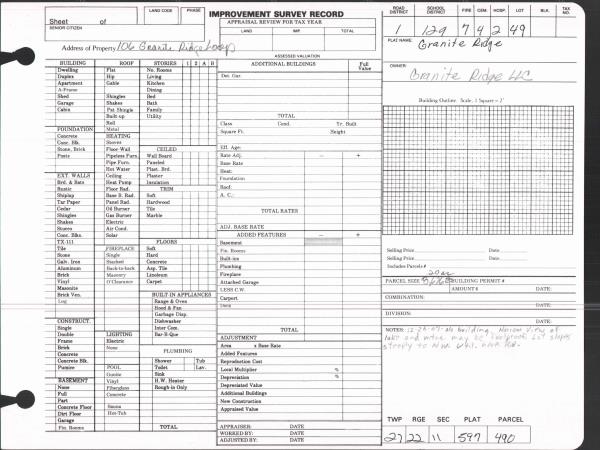 Sheet of
SENIOR CITIZEN
LAND CODE
PHASE
IMPROVEMENT SURVEY RECORD
APPRAISAL REVIEW FOR TAX YEAR
LAND IMP. TOTAL
Address of Property 106 Granite Ridge Loop
ASSESSED VALUATION
ROAD DISTRICT SCHOOL DISTRICT FIRE CEM. HOSP. LOT BLK. TAX NO.
1 129 7 4 2 49
PLAT NAME:
Granite Ridge
OWNER:
Granite Ridge LLC
Building Outline Scale, 1 Square = 2'
BUILDING
Dwelling
Duplex
Apartment
A-Frame
Shed
Garage
Cabin
FOUNDATION
Concrete
Conc. Blk.
Stone, Brick
Posts
EXT. WALLS
Brd. & Bats
Rustic
Shiplap
Tar Paper
Cedar
Shingles
Shakes
Stucco
Conc. Blks.
TX-111
Tile
Stone
Galv. Iron
Aluminum
Brick
Vinyl
Masonite
Brick Ven.
Log
CONSTRUCT.
Single
Double
Frame
Brick
Concrete
Concrete Blk.
Pumice
BASEMENT
None
Full
Part
Concrete Floor
Dirt Floor
Garage
Fin. Rooms
ROOF
Flat
Hip
Gable
Shingles
Shakes
Pat Shingle
Built-up
Roll
Metal
HEATING
Stoves
Floor Wall
Pipeless Furn.
Pipe Furn.
Hot Water
Ceiling
Heat Pump
Floor Rad.
Base B. Rad.
Panel Rad.
Oil Burner
Gas Burner
Electric
Air Cond.
Solar
FIREPLACE
Single
Stacked
Back-to-back
Masonry
O'Clearance
LIGHTING
Electric
None
POOL
Gunite
Vinyl
Fiberglass
Concrete
Sauna
Hot-Tub
STORIES 1 2 A B
No. Rooms
Living
Kitchen
Dining
Bed
Bath
Family
Utility
CEILED
Wall Board
Paneled
Plast. Brd.
Plaster
Insulation
TRIM
Soft
Hardwood
Tile
Marble
FLOORS
Soft
Hard
Concrete
Asp. Tile
Linoleum
Carpet
BUILT-IN APPLIANCES
Range & Oven
Hood & Fan
Garbage Disp.
Dishwasher
Inter Com.
Bar-B-Que
PLUMBING
Shower Tub
Toilet Lav.
Sink
H.W. Heater
Rough-in Only
TOTAL
ADDITIONAL BUILDINGS Full Value
Det. Gar.
TOTAL
Class Cond. Yr. Built
Square Ft. Height
Eff. Age:
Rate Adj. — +
Base Rate
Heat:
Foundation
Roof:
A. C.:
TOTAL RATES
ADJ. BASE RATE
ADDED FEATURES — +
Basement
Fin. Rooms
Built-ins
Plumbing
Fireplace
Attached Garage
LESS C.W.
Carport
TOTAL
ADJUSTMENT
Area x Base Rate
Added Features
Reproduction Cost
Local Multiplier %
Depreciation %
Depreciated Value
Additional Buildings
New Construction
Appraised Value
APPRAISER: DATE
WORKED BY: DATE
ADJUSTED BY: DATE
Selling Price Date
Selling Price Date
Includes Parcels#
PARCEL SIZE BUILDING PERMIT #
AMOUNT $ DATE:
COMBINATION:
DATE:
DIVISION:
DATE:
NOTES: No building. Narrow view of
lake and
steeply to
TWP RGE SEC PLAT PARCEL
27 22 11 597 490